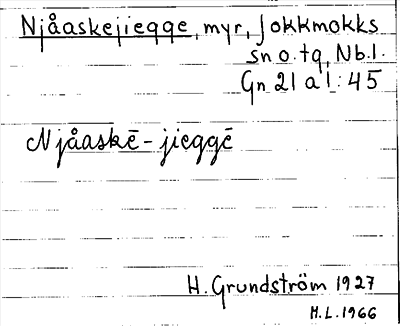 Njåaskejiegge, myr, Jokkmokks
sn o. tg, Nb.l.
Gn 21 a 1:45
Njåaskē-jieggē
H. Grundström 1927
H.L. 1966